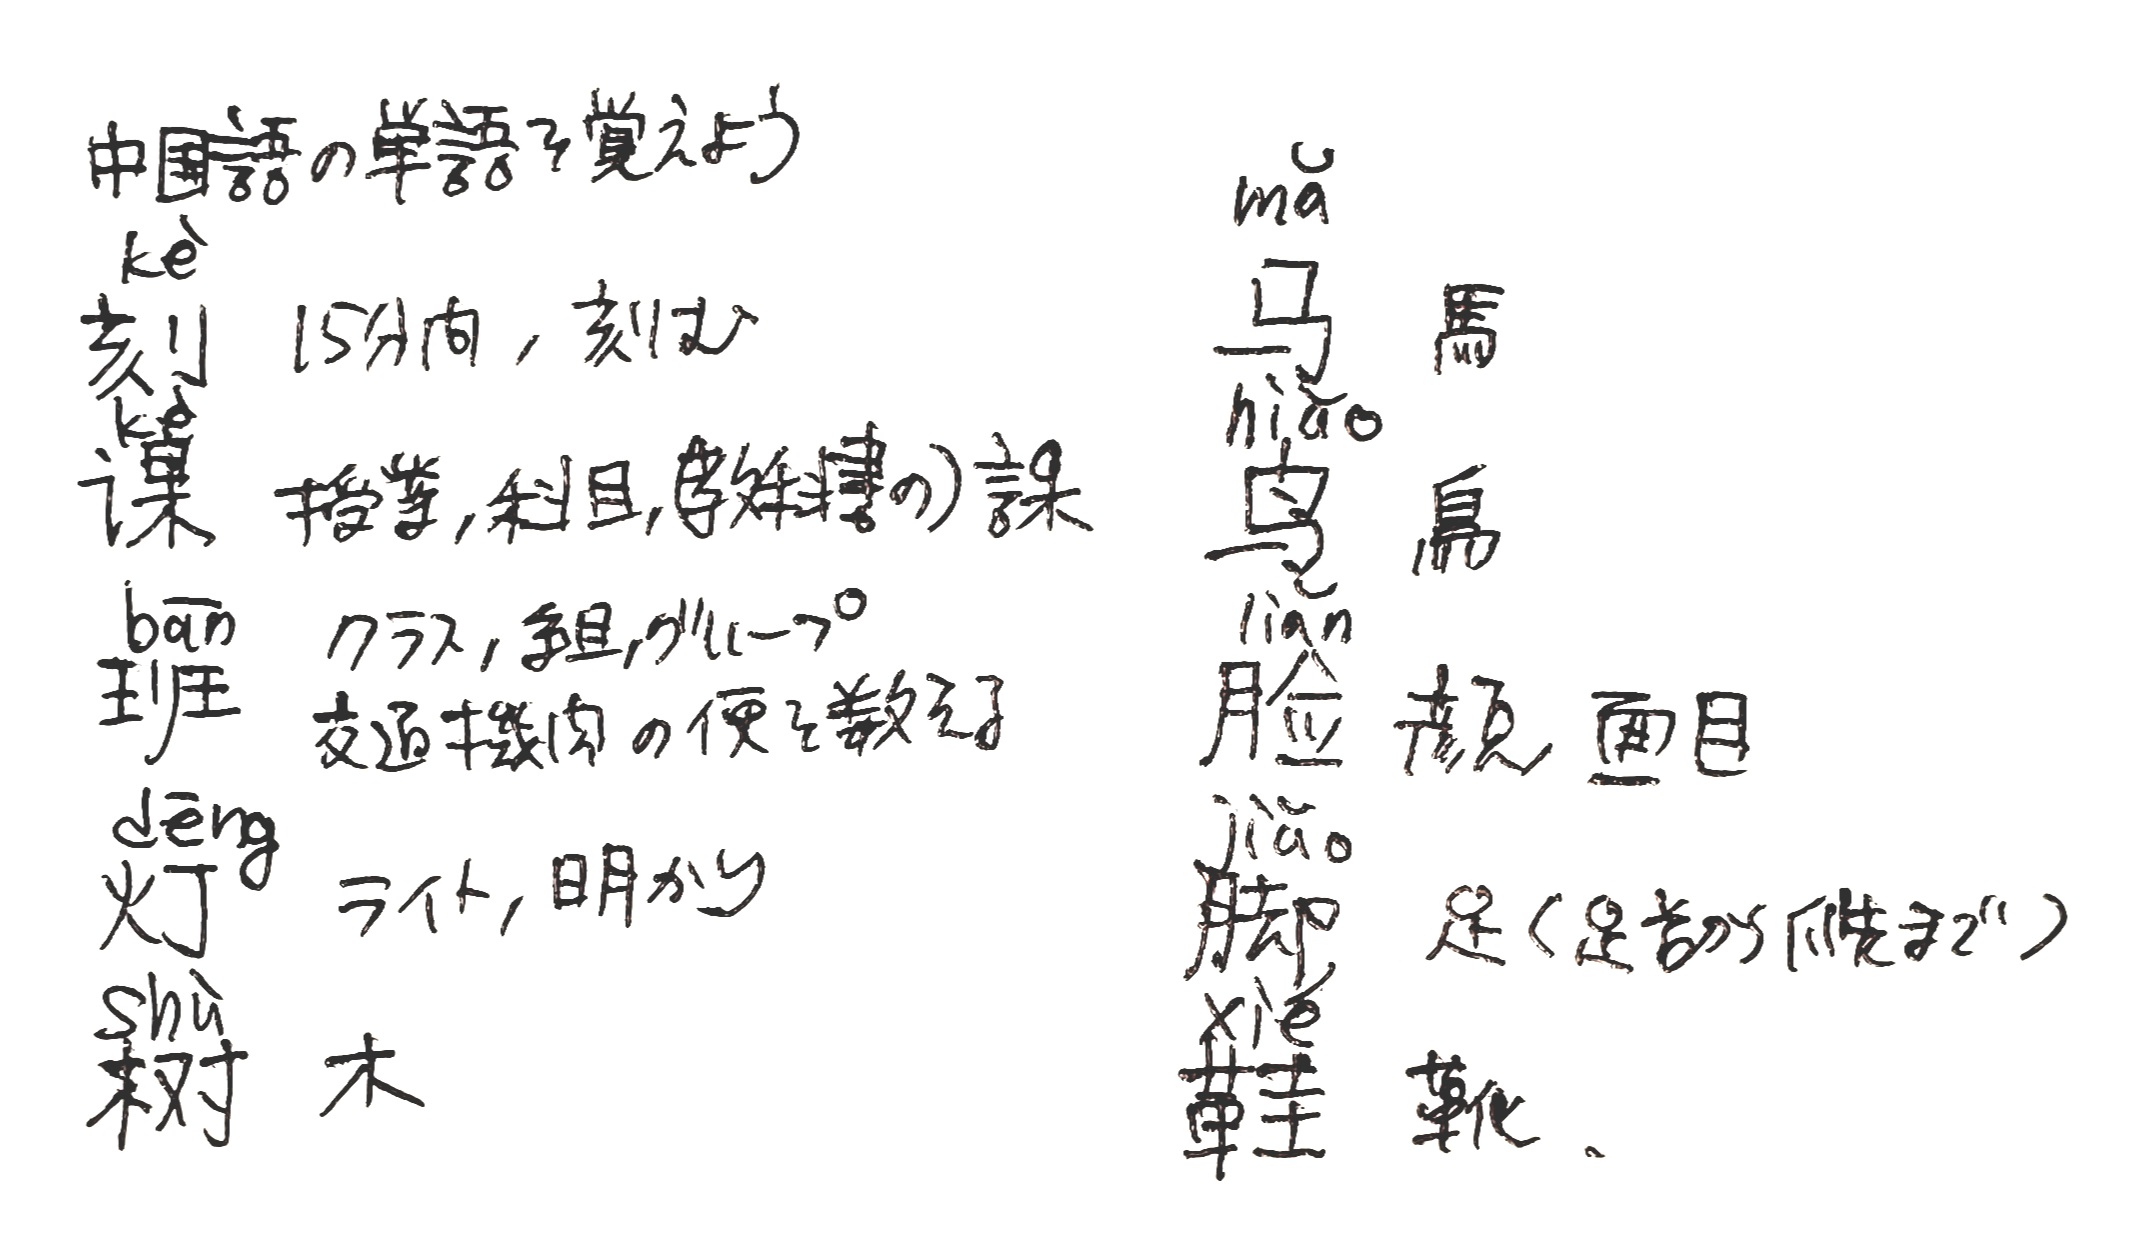 中国語の単語を覚えよう
kè
刻 15分間,刻む
kè
课 授業,科目,(教科書の)課
bān
班 クラス,組,グループ
交通機関の便を数える
dēng
灯 ライト,明かり
shù
树 木
mǎ
马 馬
niǎo
鸟 鳥
liǎn
脸 顔 面目
jiǎo
脚 足(足首から爪先まで)
xié
鞋 靴、